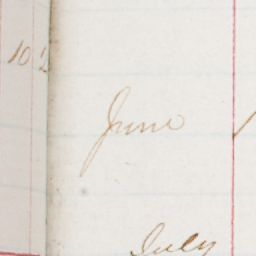 10
June
July